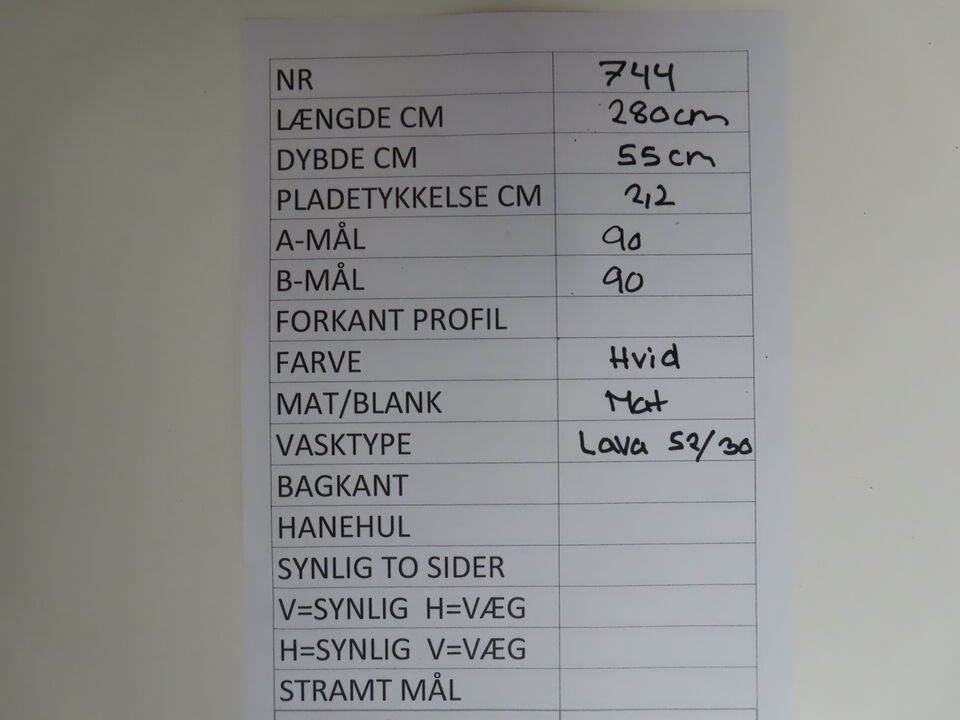 NR 744
LÆNGDE CM 280cm
DYBDE CM 55cm
PLADETYKKELSE CM 2,2
A-MÅL 90
B-MÅL 90
FORKANT PROFIL
FARVE Hvid
MAT/BLANK Mat
VASKTYPE Lava 52/30
BAGKANT
HANEHUL
SYNLIG TO SIDER
V=SYNLIG H=VÆG
H=SYNLIG V=VÆG
STRAMT MÅL